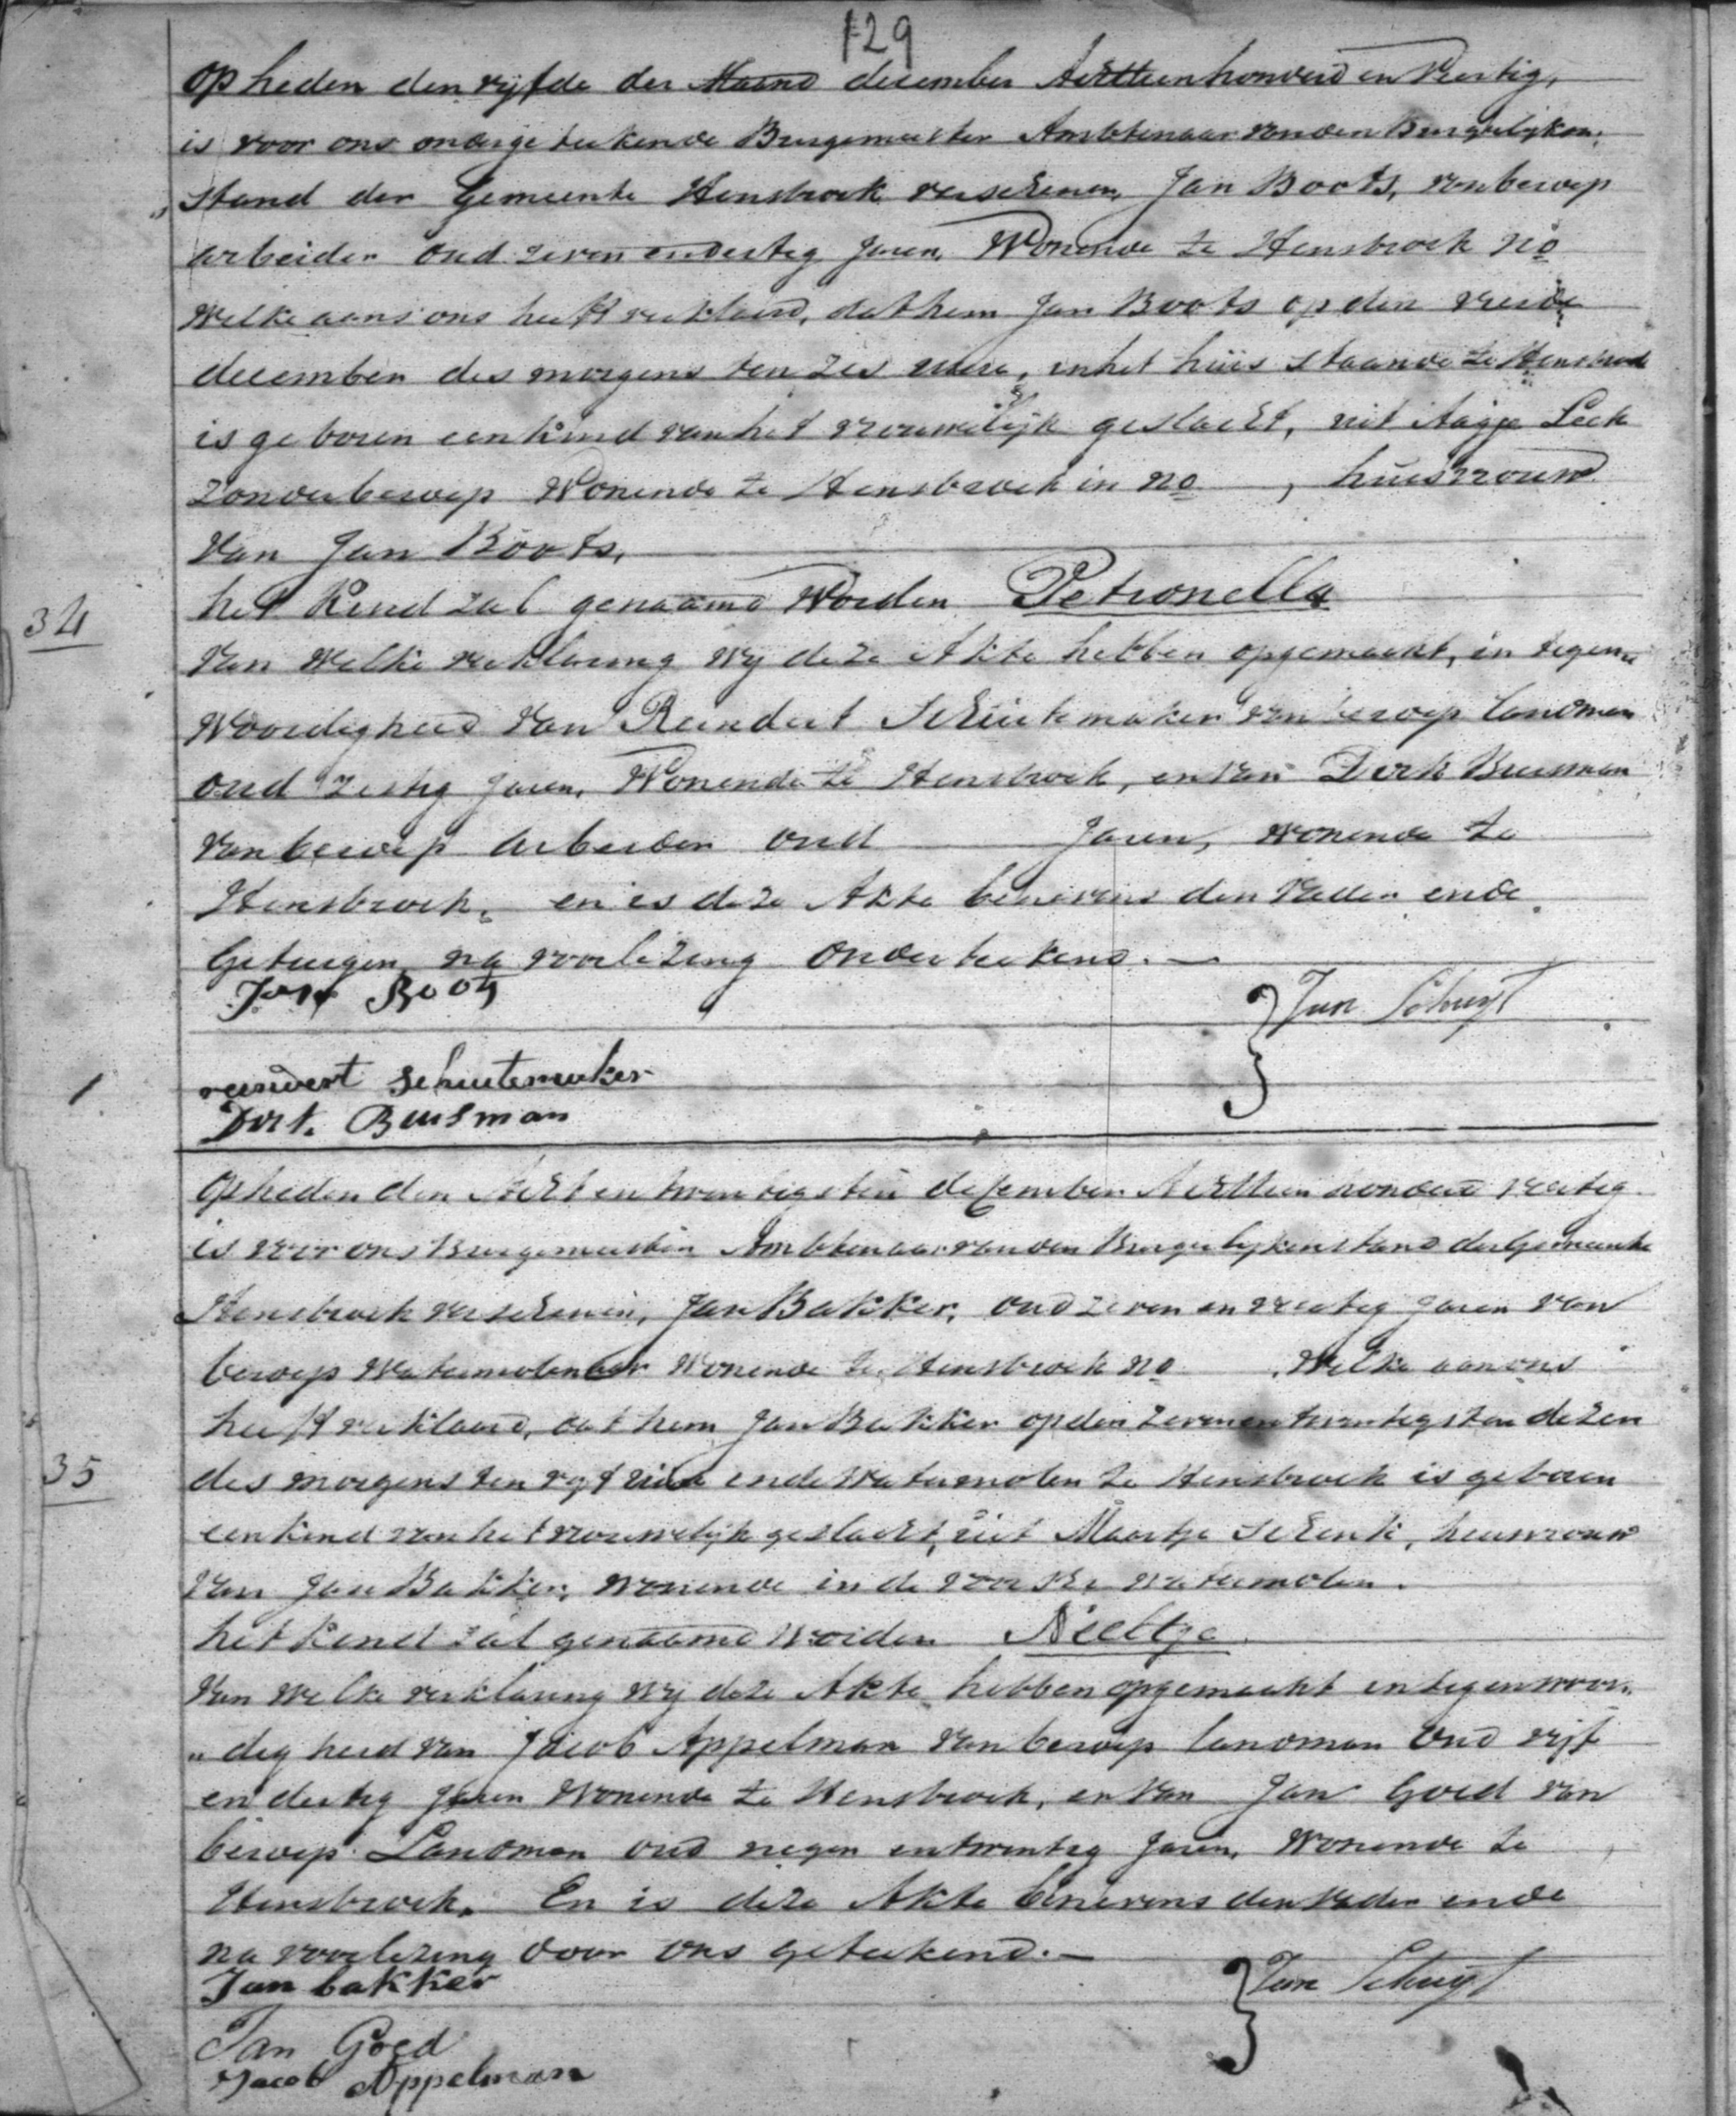 129
op heden den vijfde der Maand december Achttienhonderd en Veertig,
is voor ons ondergeteekende Burgemeester Ambtenaar vanden Burgerlijken
„stand der Gemeente Hensbroek verschenen, Jan Boots, van beroep
arbeider oud zeven endertig Jaren, Wonende te Hensbroek No
Welke aan ons heeft verklaard, dat hem Jan Boots op den
december des morgens ten zes uure, in het huis staande te Hensbroek
is geboren een kind van het vrouwelijk geslacht, uit Aagje Leek
zonder beroep Wonende te Hensbroek in No , huisvrouw
Van Jan Boots,
het Kind zal genaamd Worden Petronella
34
Van Welke verklaring wy deze Akte hebben opgemaakt, in tegen„
Woordigheid Van Reindert Schuitemaker van beroep landman
oud Zestig Jaren, Wonende te Hensbroek, en van Dirk Buisman
van beroep arbeider oud Jaren, wonende te
Hensbroek, en is deze Akte benevens den Vader ende
Getuigen na voorlezing onderteekend. —
Jan Boots
Jan Schuyt
reindert schuitemaker
Dirk. Buisman
Op heden den Achtentwintigsten december Achttien honderd veertig
is voor ons Burgemeester Ambtenaar vanden Burgerlijkenstand der Gemeente
Hensbroek verschenen, Jan Bakker, oud zeven en veertig Jaren van
beroep Watermolenaar Wonende te Hensbroek No , Welke aan ons
heeft verklaard, dat hem Jan Bakker op den zevenentwintigsten dezer
des morgens ten vijf uure in de Watermolen te Hensbroek is geboren
35
een kind van het vrouwelijk geslacht, uit Maartje Schenk, huisvrouw
van Jan Bakker, wonende in de watermolen.
het kind zal genaamd worden Neeltje
Van Welke verklaring wij deze Akte hebben opgemaakt in tegenwoor„
„digheid van Jacob Appelman van beroep landman oud vijf
en dertig Jaren Wonende te Hensbroek, en van Jan Goed van
beroep Landman oud negen entwintig Jaren, Wonende te
Hensbroek. En is deze Akte benevens den Vader ende
na voorlezing door ons geteekend. —
Jan bakker
Jan Schuyt
Jan Goed
Jacob Appelman